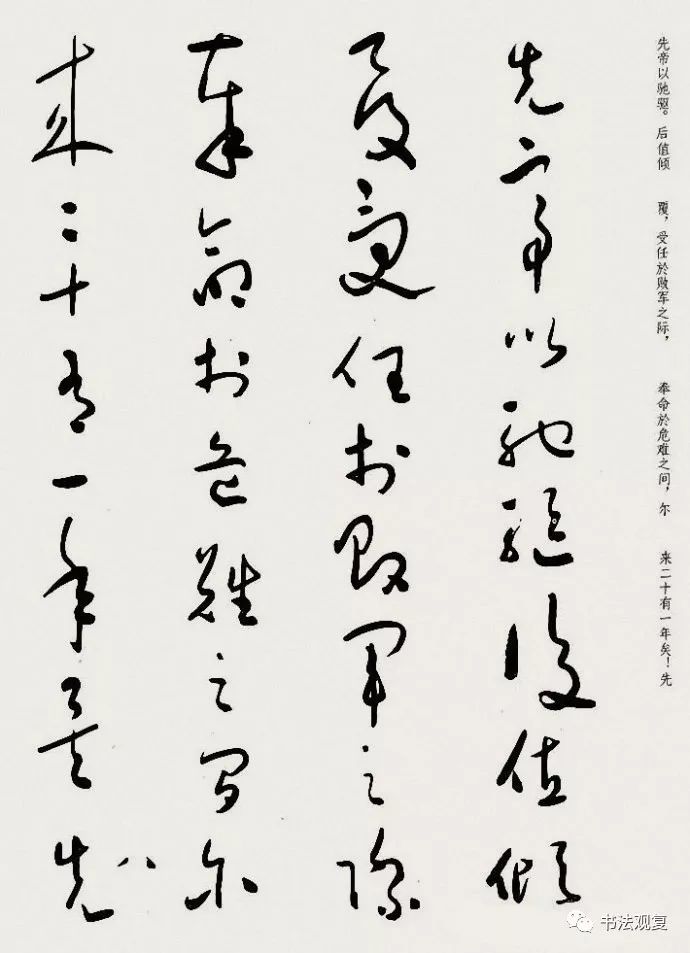 先帝以驰驱。后值倾
覆，受任於败军之际，
奉命於危难之间，尔
来二十有一年矣！先
先帝以驰驱后值倾
覆受任於败军之际
奉命於危难之间尔
来二十有一年矣先
八
书法观复